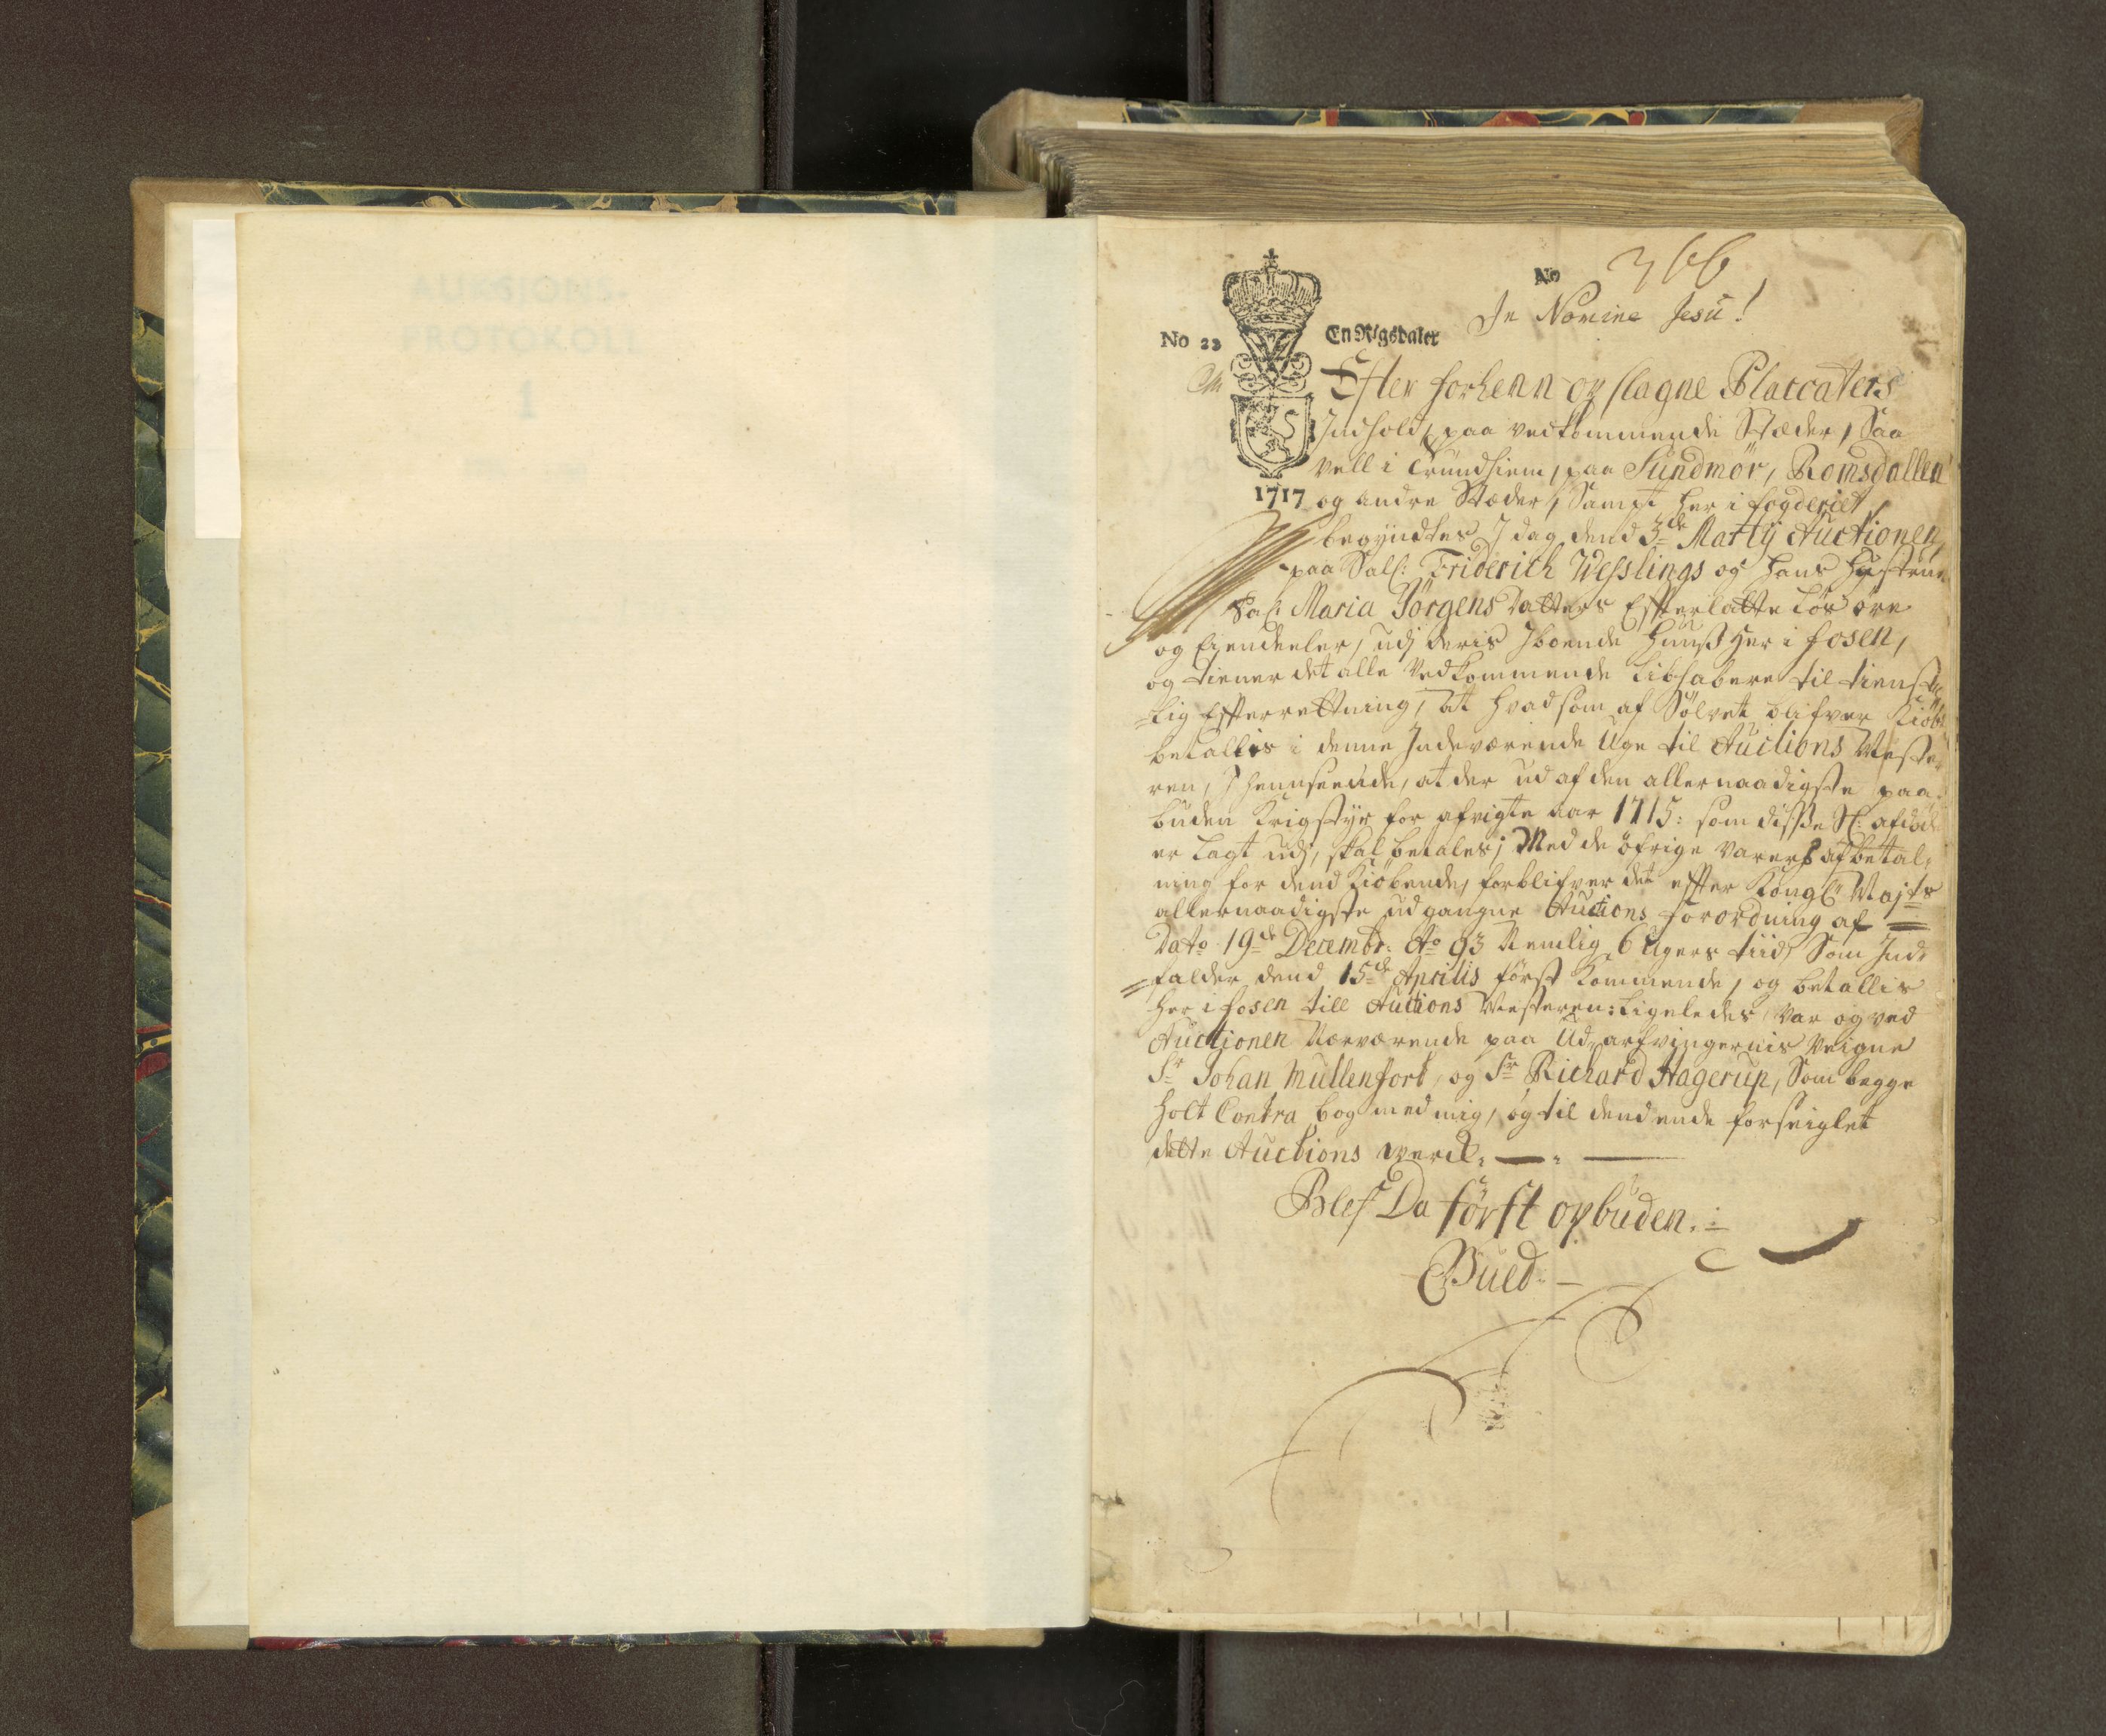 AUKSJONS-
PROTOKOLL
1
No 366
In Nomine Jesu!
No 23
En Rigsdaler
1717
Efter forhenn opslagne Placcaters
Indhold, paa vedkommende Stæder, Saa
vell i Trundhiem, paa Sundmör, Romsdallen
og andre Stæder, Sampt her i fogderiet,
begyndtes I dag dend 3de Martij Auctionen,
paa Sal: Friderich Wesslings og hans Hustrue
Sal: Maria Jörgens Datters Efterlatte Lösöre
og Eiendeeler, udj deris Iboende Huuss her i fosen,
og tiener det alle Vedkommende Libhabere til tienst
-lig Efterretning, At hvad som af Sölvet blifver Kiöbt
betallis i denne Indeværende Uge til Auctions Meste-
ren, I henseende, at der ud af den allernaadigste paa-
buden Krigstyr for afvigte aar 1715: som disse Sl: afdöde
er Lagt udj, skal betales; Med de öfrige Varers afbetal-
ning for dend Kiöbende, forblifver det efter Kongl: Majts
allernaadigste udgangne Auctions forordning af
Dato 19de Decembr: Ao 93 Nemlig 6 Ugers tiid, Som Ind-
falder dend 15de Aprilis först Kommende, og betallis
her i fosen till Auctions Mesteren: Ligeledes var og ved
Auctionen Nærværende paa Ud-arfvingernis Veigne
Sr Johan Mullenfort, og Sr Richard Hagerup, Som begge
holt Contra bog med mig, og til dend ende forseiglet
dette Auctions werck.
Blef Da först opbuden.
Guld